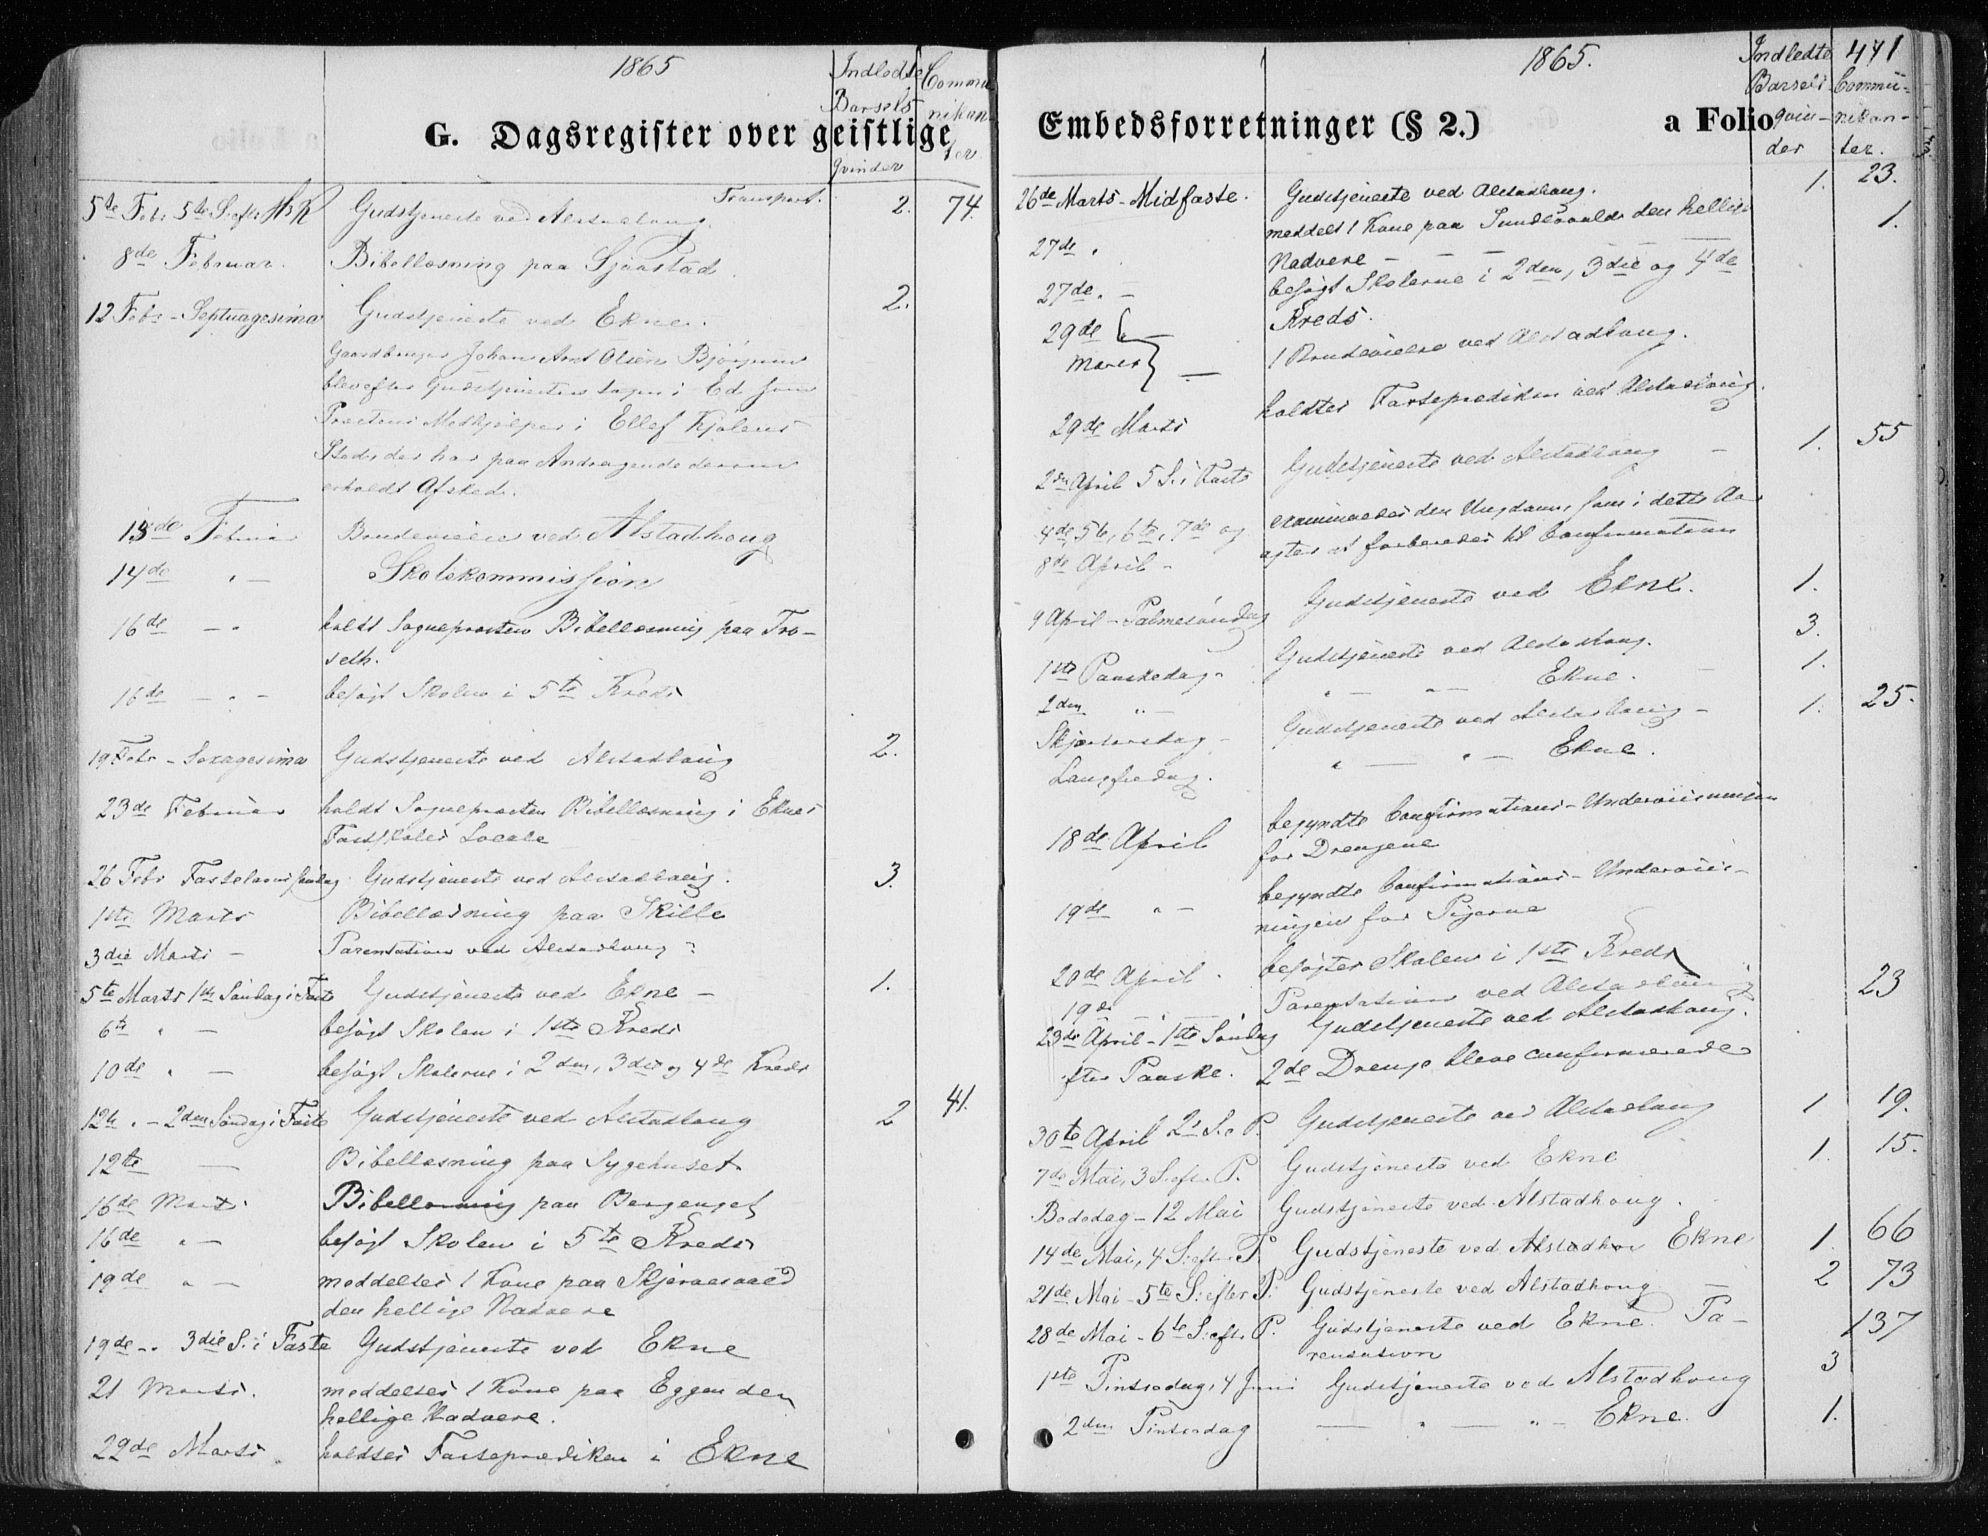 1865
Indledte
Barsels
qvinder
Commu
nikan
ter.
G. Dagsregister over geistlige
Transport. 2. 74
5te Febr 5te S. efter H3K Gudstjeneste ved Alstadhoug.
8de Februar. Bibellæsning paa Sjaastad.
12 Febr - Septuagesima Gudstjeneste ved Ekne. 2.
Gaardbruger Johan Arnt Olsen Bjørgum
blev efter Gudstjenesten tagen i Ed som
Præstens Medhjælper i Ellef Kjølens
Sted, der har paa Andragende derom
erholdt Afsked.
13de Februar Brudevielse ved Alstadhoug
14de " - Skolekommission
16de - " holdt Sognepræsten Bibellæsning paa Tro-
seth.
16de - " - besøgt Skolen i 5te Kreds
19 Febr - Sexagesima Gudstjeneste ved Alstadhoug 2.
23de Februar holdt Sognepræsten Bibellæsning i Eknes
Fastskoles Locale
26 Febr Fastelavns Søndag Gudstjeneste ved Alstadhoug. 3.
1ste Marts Bibellæsning paa Skille
3die Marts - Parentation ved Alstadhoug
5te Marts 1ste Søndag i Faste Gudstjeneste ved Ekne - 1.
6te " - besøgt Skolen i 1ste Kreds
10de " - besøgt Skolerne i 2den, 3die og 4de Kreds
12te " - 2den Søndag i Faste Gudstjeneste ved Alstadhoug 2 41.
12te - Bibellæsning paa Sygehuset
16de Marts. Bibellæsning paa
16de " - besøgt Skolen i 5te Kreds
19de " - meddeltes 1 Kone paa
den hellige Nadvere
19de - " 3die S. i Faste Gudstjeneste ved Ekne
21 Marts. meddeltes 1 Kone paa Eggen den
hellige Nadvere.
29de Marts. holdtes Fasteprædiken i Ekne
1865.
Indledte
Barsels
qvin-
der
471
Commu-
nikan-
ter.
Embedsforretninger (§ 2.) a Folio
26de Marts - Midfaste. Gudstjeneste ved Alstadhoug. 1. 23.
27de " meddelt 1 Kone paa den hellige 1.
Nadvere - - -
27de " - besøgt Skolerne i 2den, 3die og 4de
Kreds.
29de
Marts - 1 Brudevielse ved Alstadhoug.
29de Marts holdtes Fasteprædiken ved Alstadhoug.
2den April 5 S. i Faste Gudstjeneste ved Alstadhoug - 1. 55
4de, 5te, 6te, 7de og examineredes den Ungdom, som i dette Aar
8de April - agtes at forberedes til Confirmation
9 April - Palmesøndag Gudstjeneste ved Ekne. 1.
1ste Paaskedag. Gudstjeneste ved Alstadhoug. 3.
2den " - " - " - Ekne. - 1.
Skjærtorsdag - Gudstjeneste ved Alstadhoug - 1. 25.
Langfredag. " - " - Ekne.
18de April begyndte Confirmations-Underviisningen
for Drengene
19de " - begyndte Confirmations-Underviis-
ningen for Pigerne
20de April. besøgtes Skolen i 1ste Kreds
19de Parentation ved Alstadhoug 23
23de April - 1ste Søndag Gudstjeneste ved Alstadhoug.
efter Paaske. 2de Drenge bleve confirmerede
30te April 2 S. e P. Gudstjeneste ved Alstadhoug 1 19.
7de Mai, 3 S. efter P. Gudstjeneste ved Ekne 1. 15.
Bededag - 12 Mai Gudstjeneste ved Alstadhoug.
14de Mai, 4 S. efter P. Gudstjeneste ved Alstadhou Ekne 1. 66
21de Mai - 5te S. efter P. Gudstjeneste ved Alstadhoug - 2 73
28de Mai - 6te S. efter P. Gudstjeneste ved Ekne. Pa- 137
rentation
1ste Pintsedag, 4 Juni Gudstjeneste ved Alstadhoug 3
2den Pintsedag - " - " - Ekne. 1.